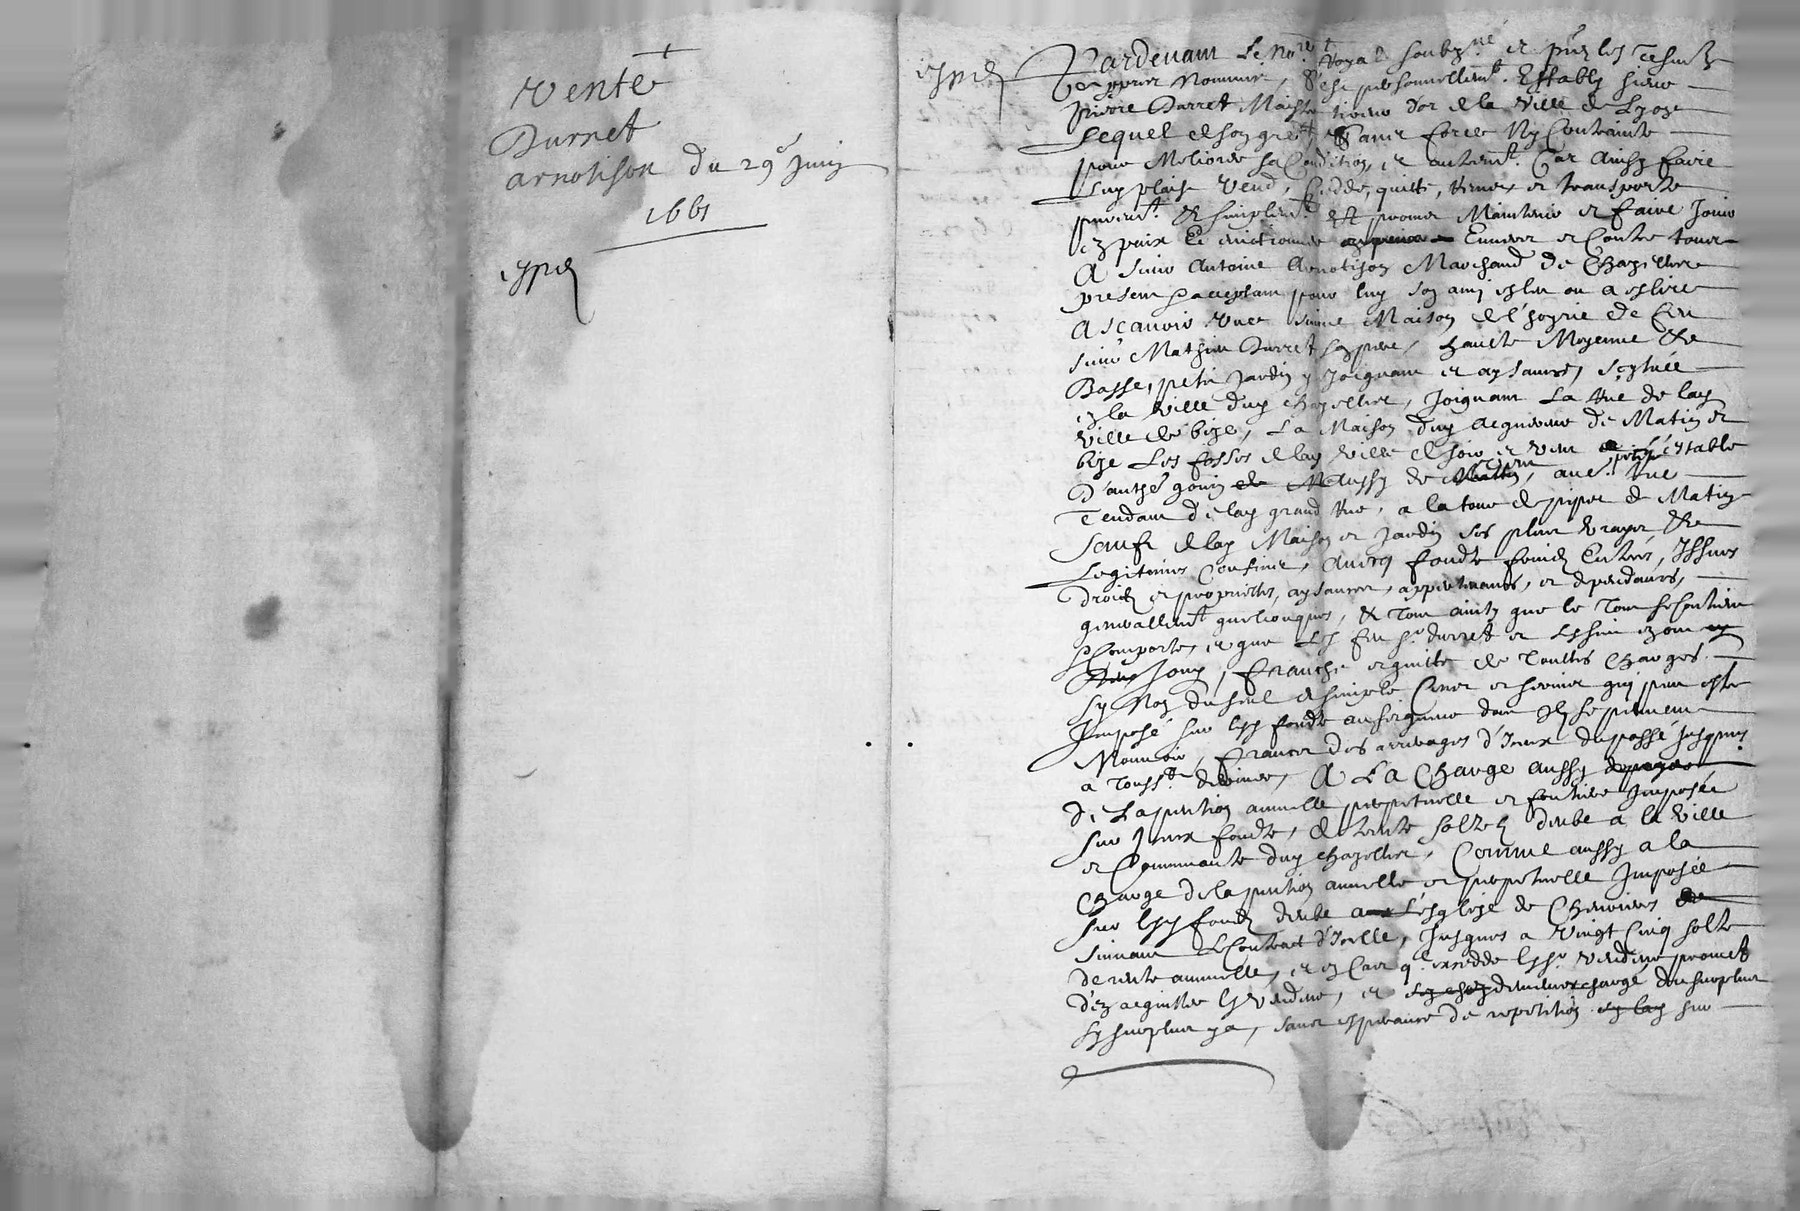 Vente
Durret
arnotison du 29e Juin
1661
expié
expié
Pardevant Le no.re Royal soubz.né et p.ns les Tesmoins
apprès nommés, s'est personnellem.t Estably sieur
pierre Durret Maistre tireur d'or de la Ville de Lyon
Lequel de son gré et sans force Ny Contrainte
pour Meliorer sa Condition, et autrem.t Car Ainsy faire
Luy plaist Vend, Cedde, quitte, remet et transporte
purem.t et simplem.t et promet Maintenir et faire Jouir
en paix Envers et Contre tous
A Sieur Antoine Arnotison Marchand de Chazelles
present acceptant pour luy son amy eslu ou a eslire
A Scavoir Une sienne Maison de l'hoyrie de feu
sieur Mathieu Durret son pere, haulte Moyenne et
Basse, petit Jardin y Joignant et aysances, scytuée
en la Ville dud. Chazelles, Joignant La Rue de lad.
Ville de bize, La Maison dud. acquereur de Matin et
bize Les fosses de lad. Ville de soir et vent petit estable
d'anthe gonin aussy de avec Rue
Tendant de lad. grand Rue, a la tour de pipre de Matin
Sauf de lad. Maison et Jardin ses plus vrayes et
Legitimes Confins, Avecq fondz Entrées, Issues
droictz et proprietés, aysances, appartenances, et dependances,
generallem.t quelconques, et Tout ainsy que le Tout se Contient
et Comporte, et que Led. feu s.r durret et Les siens en ont
Jouy, franche et quitte de Touttes Charges
sy Non du seul et simple Cens et servis qui peut estre
Imposé sur led. fondz au seigneur dont Il se treuvera
Mouvoir, francz des arrerages d'Iceux du passé Jusques
a Touss.tz dernier, A La Charge aussy
de La pention annuelle perpetuelle et fonciere Imposée
sur Iceux fondz, de trente solz deube a la Ville
et Communauté dud. Chazelles, Comme aussy a la
Charge de la pention annuelle et perpetuelle Imposée
sur led. fondz deube a L'esglise de Chevrieres
suivant Le Contract d'Icelle, Jusques a Vingt Cinq solz
de rente annuelle, et en Cas q. excedde led. s.r vendeur promet
d'en acquitter led. vendeur, et charge du surplus
sy surplus y a, sans esperance de repetition sur